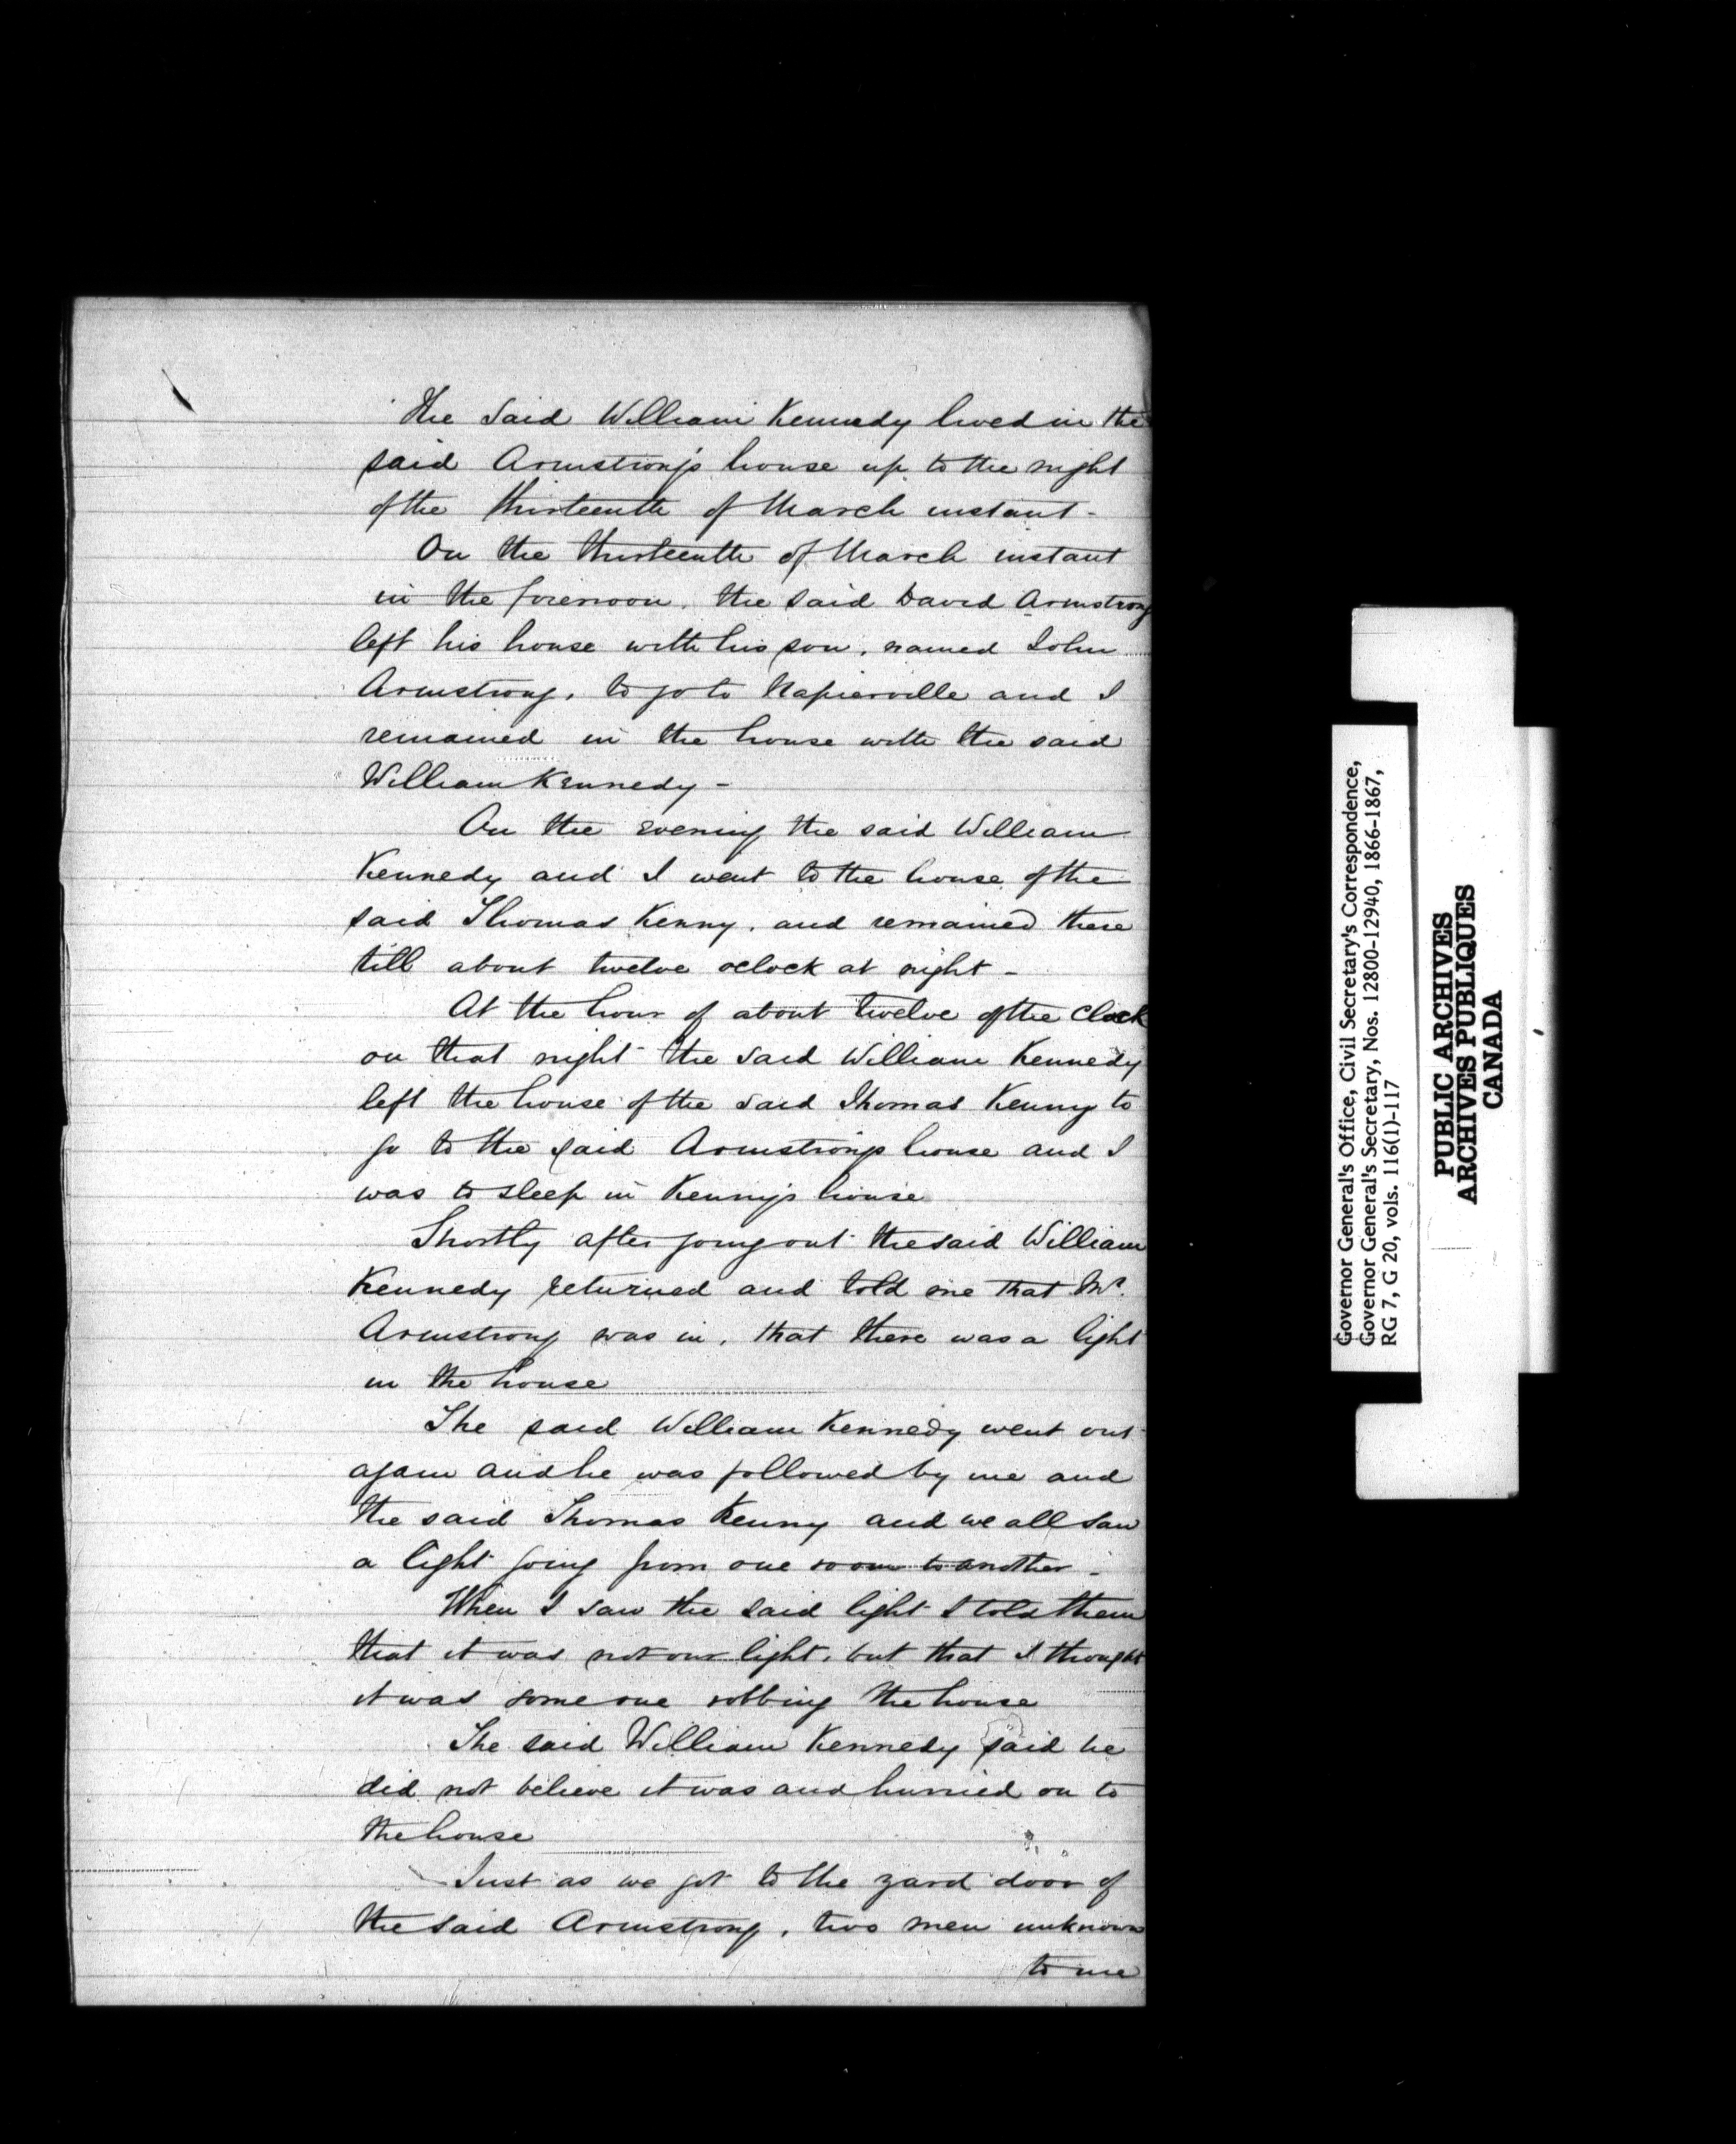 The said William Kennedy lived in the
said Armstrong's house up to the night
of the thirteenth of March instant -
On the thirteenth of March instant
in the forenoon, the said David Armstrong
left his house with his son, named John
Armstrong, to go to Napierville and I
remained in the house with the said
William Kennedy -
On the evening the said William
Kennedy and I went to the house of the
said Thomas Kenny, and remained there
till about twelve oclock at night -
At the hour of about twelve of the clock
on that night the said William Kennedy
left the house of the said Thomas Kenny to
go to the said Armstrong's house and I
was to sleep in Kenny's house
Shortly after going out the said William
Kennedy returned and told me that Mr.
Armstrong was in, that there was a light
in the house
The said William Kennedy went out
again and he was followed by me and
the said Thomas Kenny and we all saw
a light going from one room to another -
When I saw the said light I told them
that it was not our light, but that I thought
it was some one robbing the house
The said William Kennedy said he
did not believe it was and hurried on to
the house
Just as we got to the yard door of
the said Armstrong, two men unknown
to me
Governor General's Office, Civil Secretary's Correspondence,
Governor General's Secretary, Nos. 12800-12940, 1866-1867,
RG 7, G 20, vols. 116(1)-117
PUBLIC ARCHIVES
ARCHIVES PUBLIQUES
CANADA